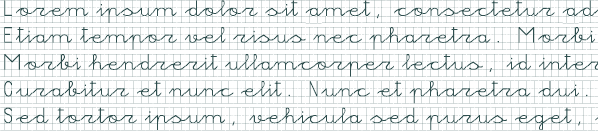 Lorem ipsum dolor sit amet, consectetur ad
Etiam tempor vel risus nec pharetra. Morbi
Morbi hendrerit ullamcorper lectus, id inter
Curabitur et nunc elit. Nunc et pharetra dui.
Sed tortor ipsum, vehicula sed purus eget,